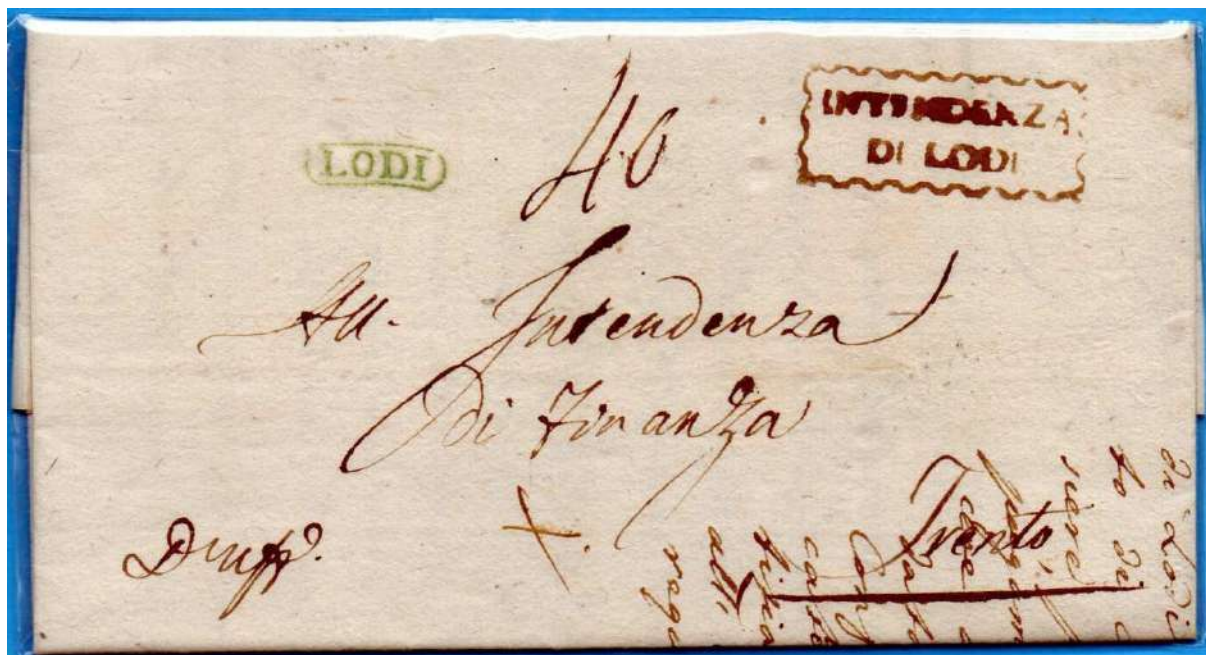 LODI
40
INTENDENZA
DI LODI
All. Intendenza
Di Finanza
Trento
D'uff.
di Lodi
to di